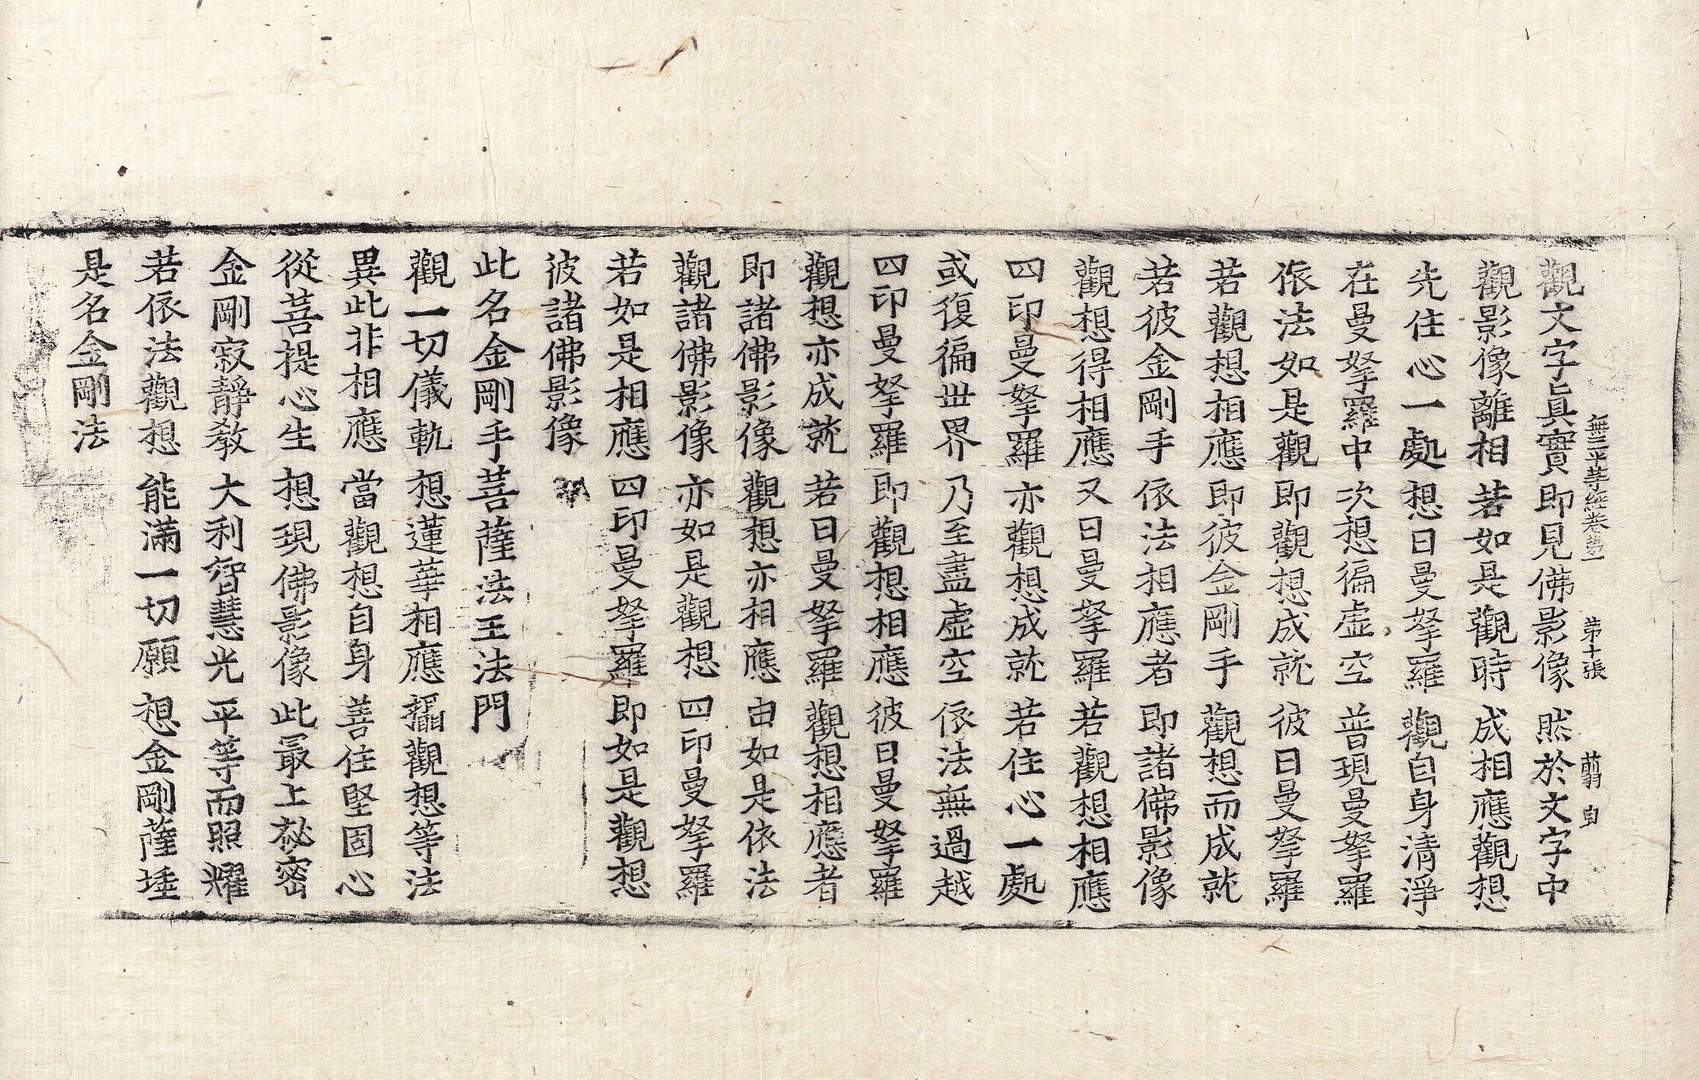 無二平等經卷第一 第十張 翦 自
觀文字真實即見佛影像 然於文字中
觀影像離相 若如是觀時 成相應觀想
先住心一處 想日曼拏羅 觀自身清淨
在曼拏羅中 次想徧虛空 普現曼拏羅
依法如是觀 即觀想成就 彼日曼拏羅
若觀想相應 即彼金剛手 觀想而成就
若彼金剛手 依法相應者 即諸佛影像
觀想得相應 又日曼拏羅 若觀想相應
四印曼拏羅 亦觀想成就 若住心一處
或復徧世界 乃至盡虛空 依法無過越
四印曼拏羅 即觀想相應 彼日曼拏羅
觀想亦成就 若日曼拏羅 觀想相應者
即諸佛影像 觀想亦相應 由如是依法
觀諸佛影像 亦如是觀想 四印曼拏羅
若如是相應 四印曼拏羅 即如是觀想
彼諸佛影像
此名金剛手菩薩法王法門
觀一切儀軌 想蓮華相應 攝觀想等法
異此非相應 當觀想自身 善住堅固心
從菩提心生 想現佛影像 此最上祕密
金剛寂靜教 大利智慧光 平等而照耀
若依法觀想 能滿一切願 想金剛薩埵
是名金剛法